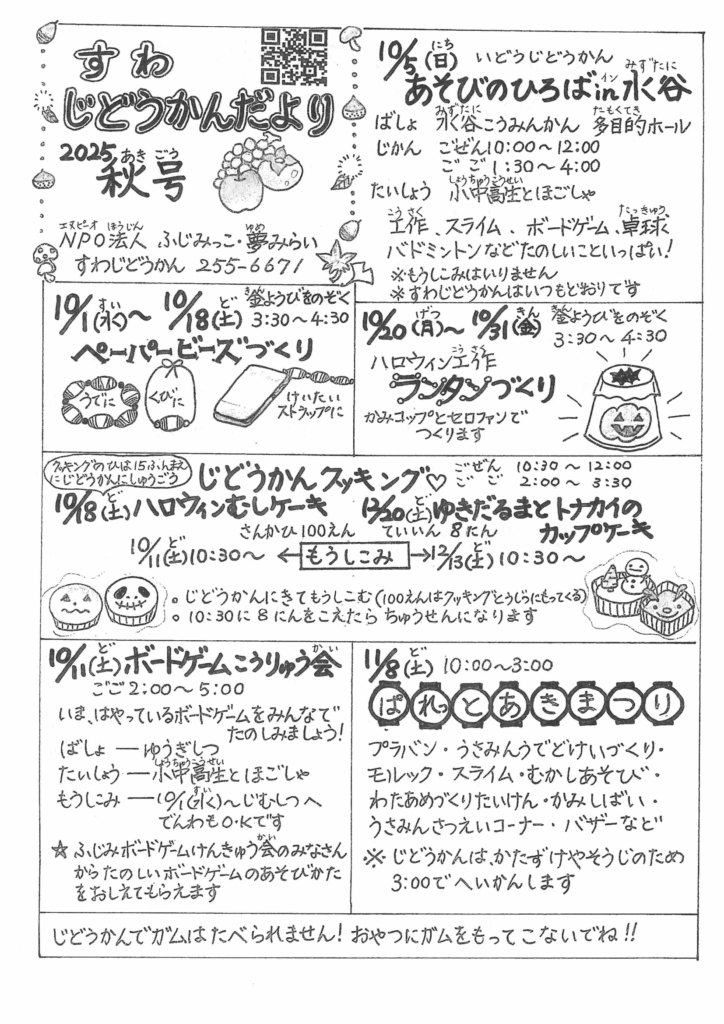 すわ
じどうかんだより
2025 秋号
あき ごう
エヌピーオ ほうじん ゆめ
NPO法人 ふじみっこ・夢みらい
すわじどうかん 255-6671
10/5(日) いどうじどうかん
にち みずたに
あそびのひろばin水谷
イン
みずたに たもくてき
ばしょ 水谷こうみんかん 多目的ホール
じかん ごぜん10:00〜12:00
ごご 1:30〜4:00
しょうちゅうこうせい
たいしょう 小中高生とほごしゃ
こうさく たっきゅう
工作、スライム、ボードゲーム、卓球、
バドミントンなどたのしいこといっぱい!
※もうしこみはいりません
※すわじどうかんはいつもどおりです
すい ど きん
10/1(水)〜10/18(土) 金ようびをのぞく
3:30〜4:30
ペーパービーズづくり
うでに
くびに
けいたい
ストラップに
げつ きん きん
10/20(月)〜10/31(金) 金ようびをのぞく
3:30〜4:30
こうさく
ハロウィン工作
ランタンづくり
かみコップとセロファンで
つくります
クッキングのひは15ふんまえ
にじどうかんにしゅうごう
じどうかんクッキング♡
ごぜん 10:30〜12:00
ごご 2:00〜3:30
ど
10/18(土)ハロウィンむしケーキ
ど
12/20(土)ゆきだるまとトナカイの
カップケーキ
さんかひ100えん ていいん 8にん
ど ど
10/11(土)10:30〜 ←もうしこみ→ 12/13(土) 10:30〜
。じどうかんにきてもうしこむ(100えんはクッキングとうじつにもってくる)
。10:30に8にんをこえたら ちゅうせんになります
ど かい
10/11(土)ボードゲームこうりゅう会
ごご2:00〜5:00
いま、はやっているボードゲームをみんなで
たのしみましょう!
ばしょ ― ゆうぎしつ
しょうちゅうこうせい
たいしょう ― 小中高生とほごしゃ
すい
もうしこみ ― 10/1(水)〜じむしつへ
でんわもO・Kです
かい
☆ ふじみボードゲームけんきゅう会のみなさん
からたのしいボードゲームのあそびかた
をおしえてもらえます
ど
11/8(土) 10:00〜3:00
ぱれっとあきまつり
プラバン・うさみんうでどけいづくり・
モルック・スライム・むかしあそび・
わたあめづくりたいけん・かみしばい・
うさみんさつえいコーナー・バザーなど
※ じどうかんは、かたずけやそうじのため
3:00でへいかんします
じどうかんでガムはたべられません! おやつにガムをもってこないでね!!